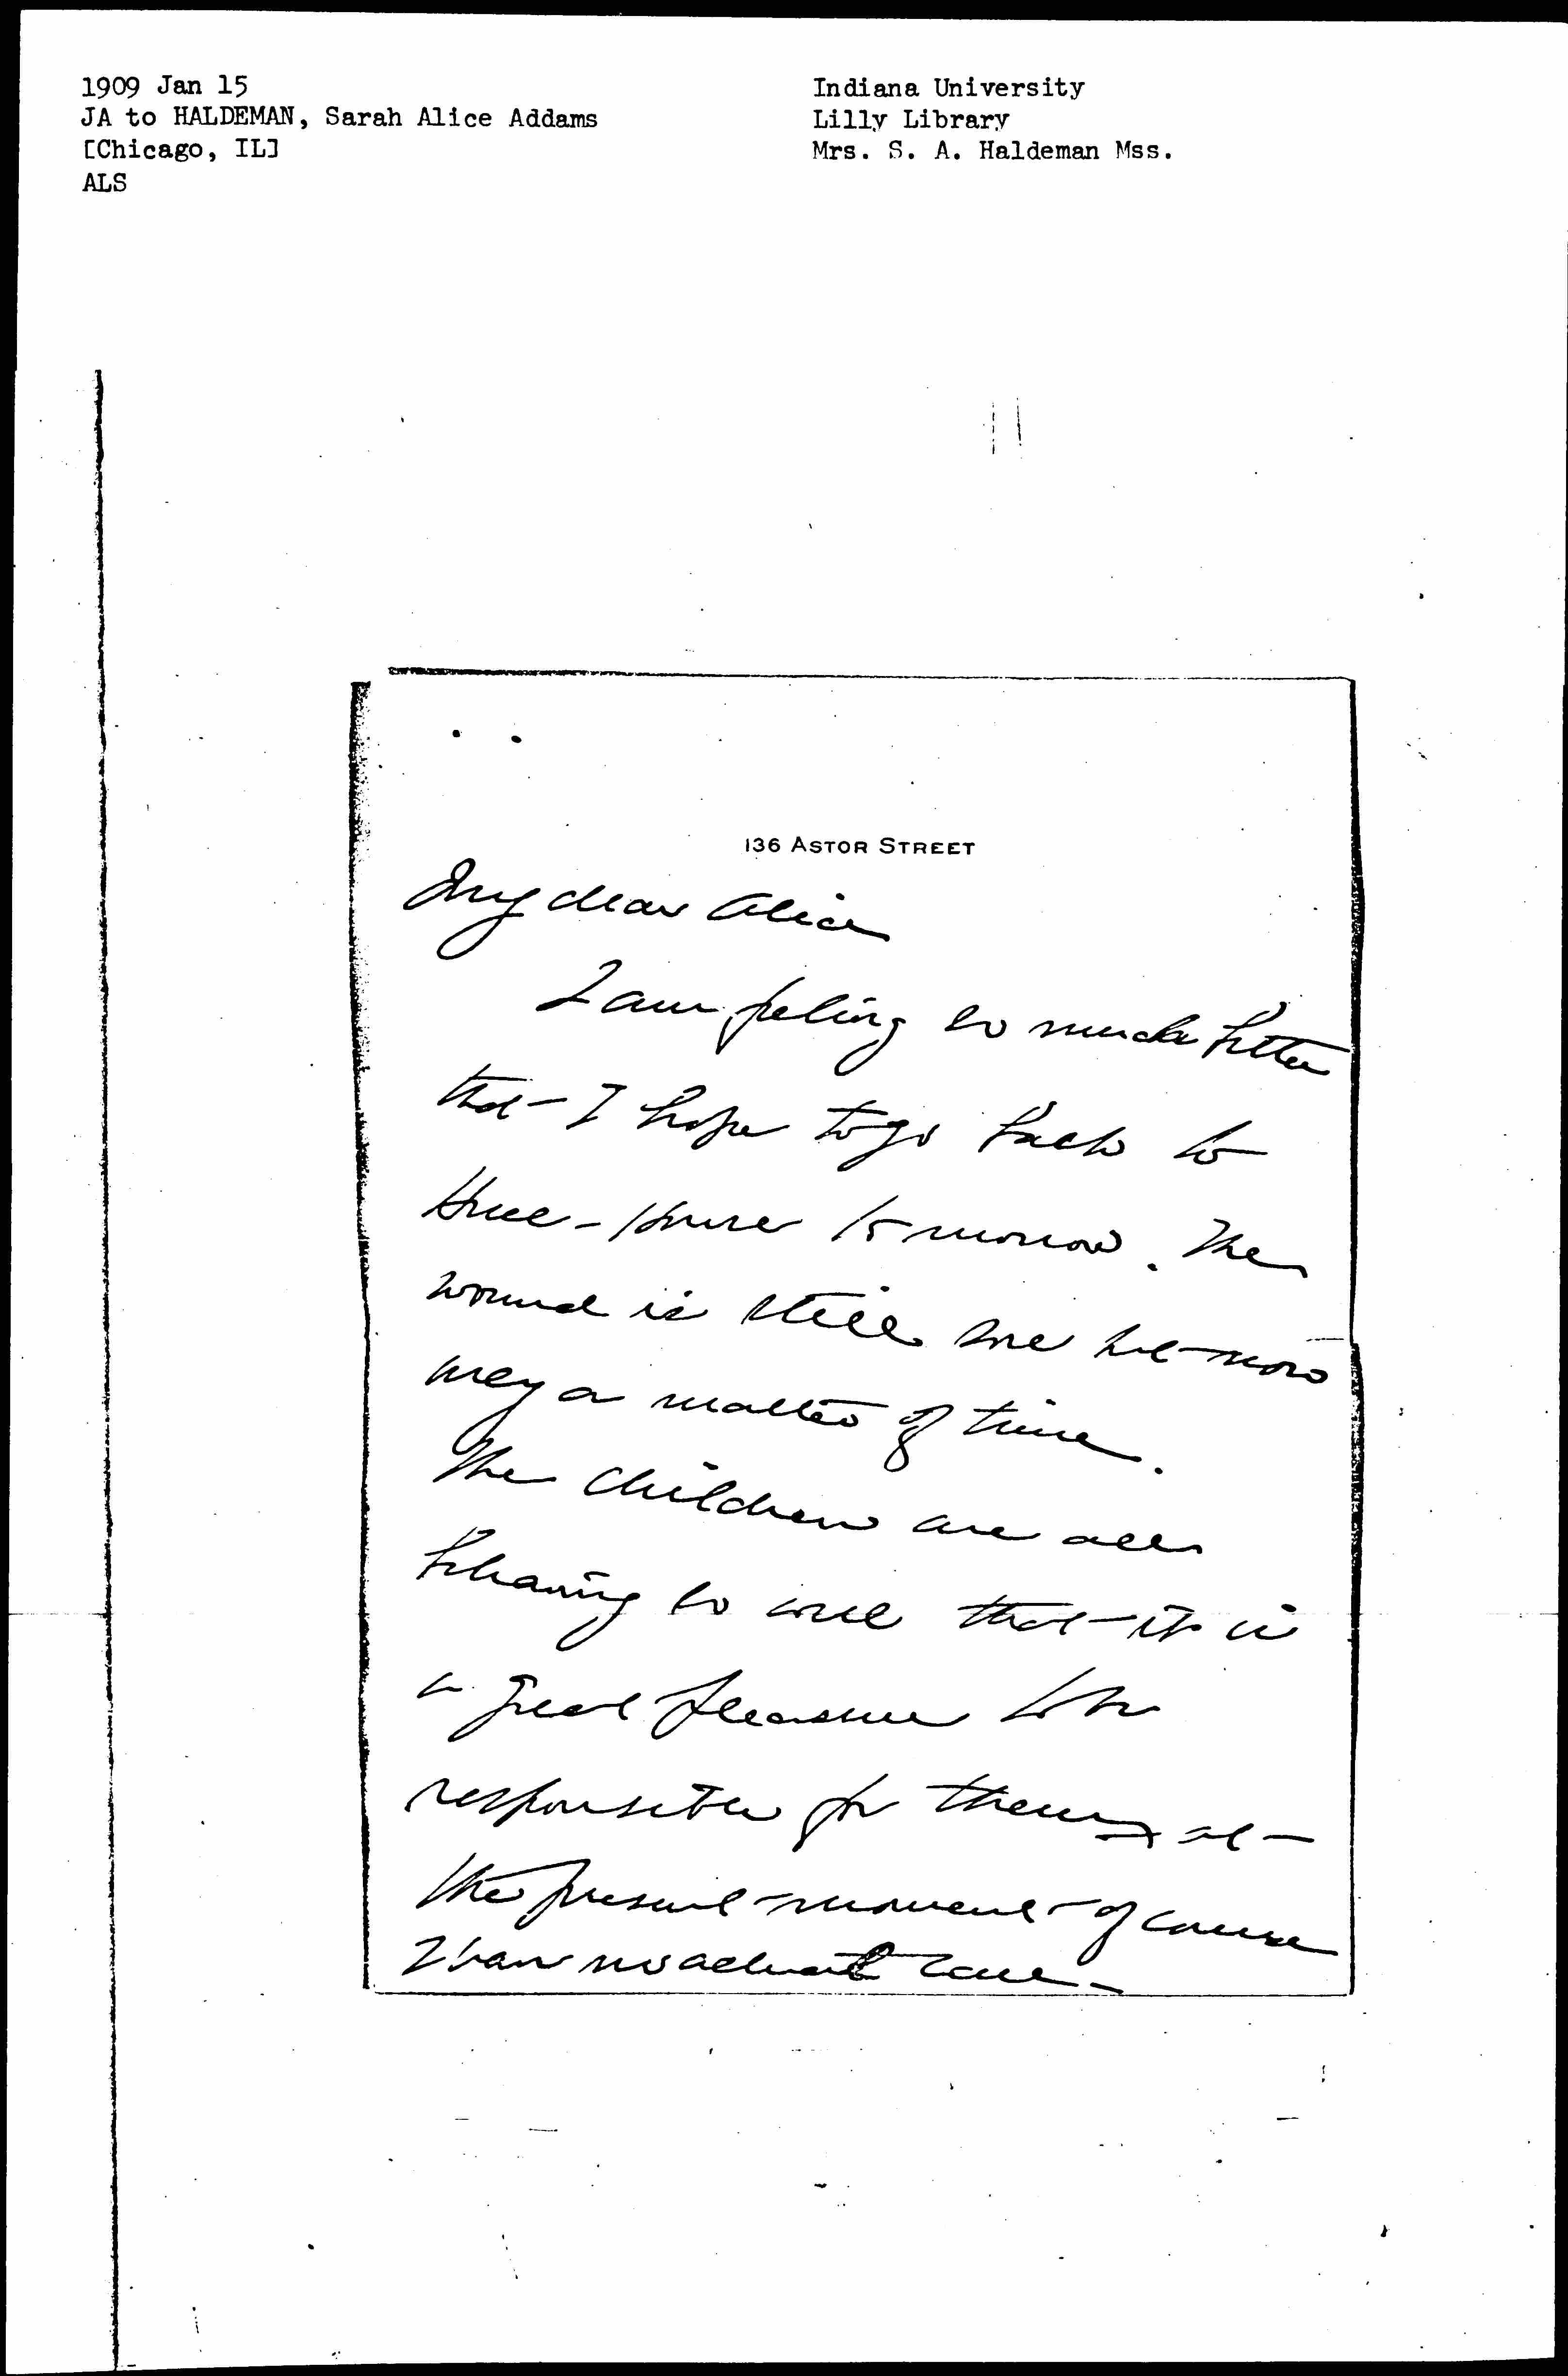 1909 Jan 15
JA to HALDEMAN, Sarah Alice Addams
[Chicago, IL]
ALS
Indiana University
Lilly Library
Mrs. S. A. Haldeman Mss.
136 ASTOR STREET
My dear Alice
I am feeling so much better
that I hope to go back to
Hull-House to morrow. The
wound is still sore but now
mey a matter of time.
The children are all
behaving so well that it is
a great pleasure to be
responsible for them at
the present moment of course
I have no actual care